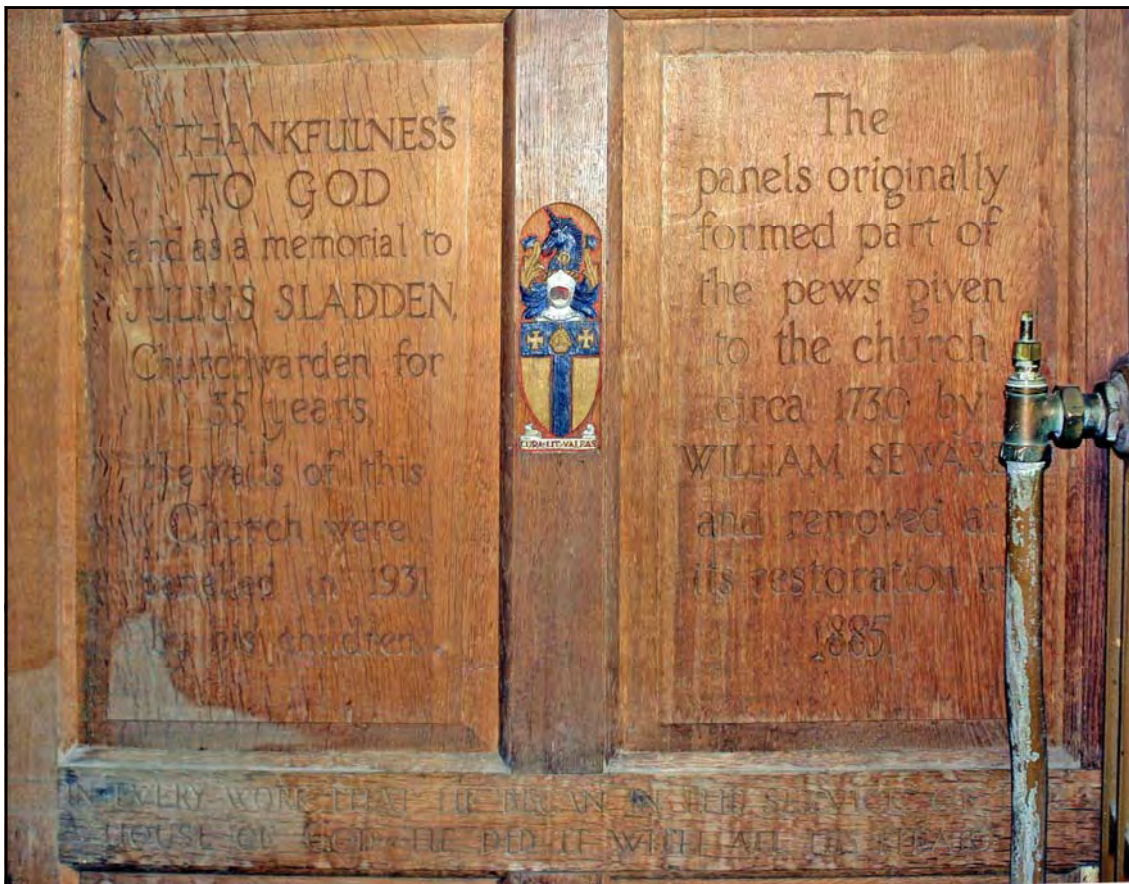 IN THANKFULNESS
TO GOD
and as a memorial to
JULIUS SLADDEN,
Churchwarden for
35 years,
the walls of this
Church were
panelled in 1931
by his children.
CURA·UT·VALEAS
The
panels originally
formed part of
the pews given
to the church
circa 1730 by
WILLIAM SEWARD
and removed at
its restoration in
1885.
IN EVERY WORK THAT HE BEGAN IN THE SERVICE OF
HOUSE OF GOD HE DID IT WITH ALL HIS HEART